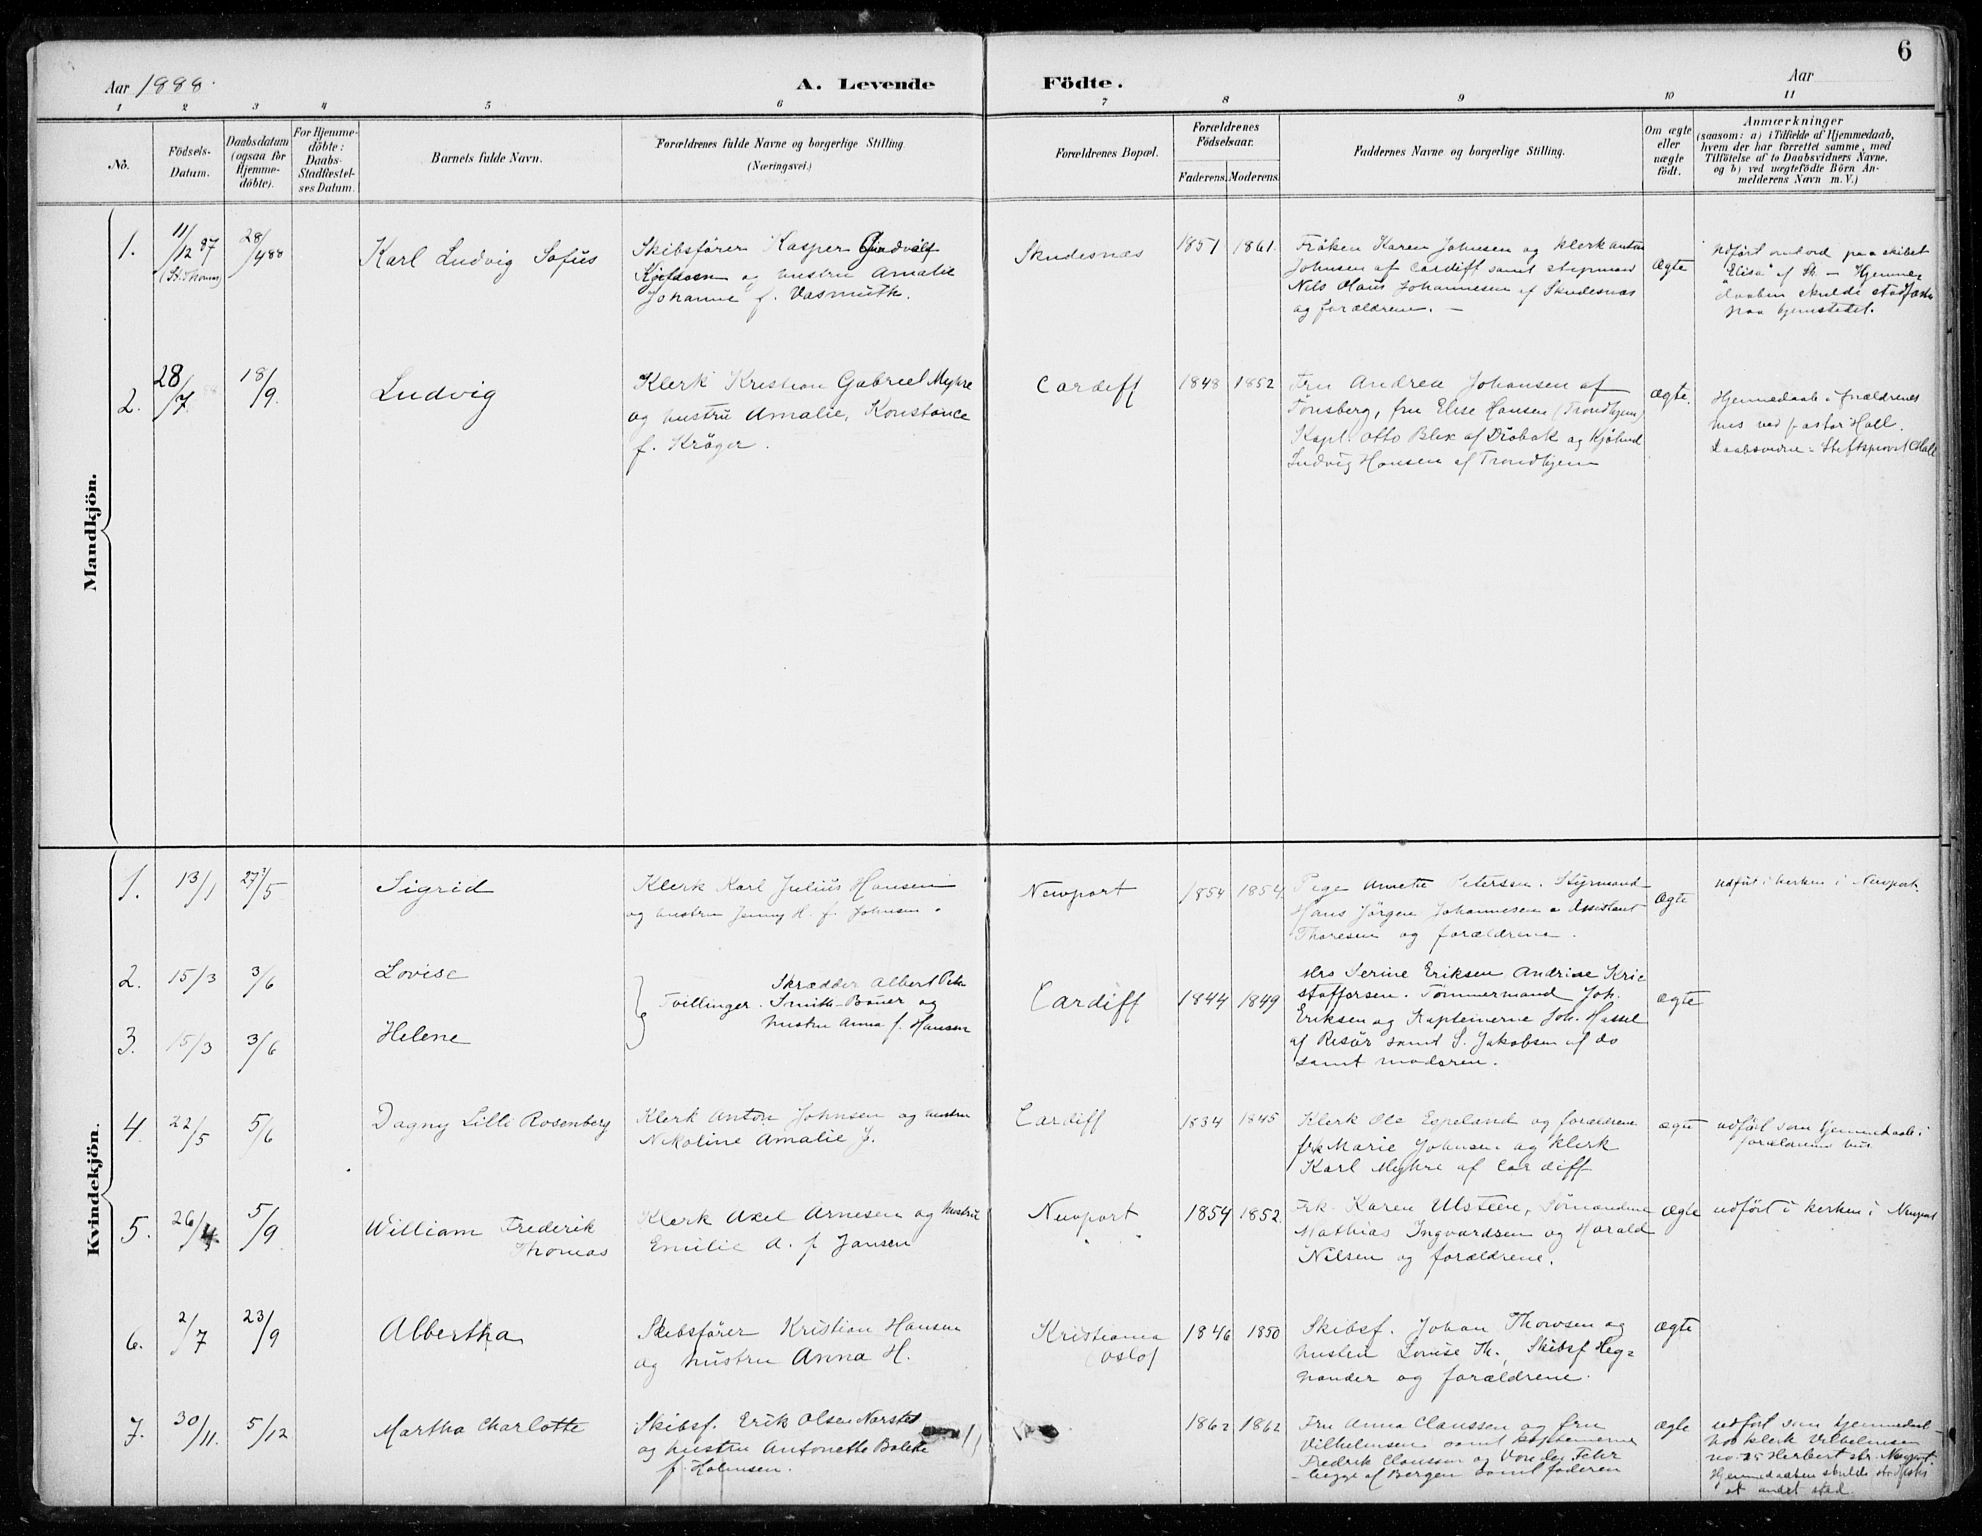 6
Aar 1888.
A. Levende Födte.
Aar
1 2 3 4 5 6 7 8 9 10 11
Nö.
Födsels-
Datum.
Daabsdatum
(ogsaa for
Hjemme-
döbte).
For Hjemme-
döbte:
Daabs-
Stadfæstel-
ses Datum.
Barnets fulde Navn.
Forældrenes fulde Navne og borgerlige Stilling.
(Næringsvei.)
Forældrenes Bopæl.
Forældrenes
Födselsaar.
Faderens. Moderens.
Faddernes Navne og borgerlige Stilling.
Om ægte
eller
uægte
födt.
Anmærkninger
(saasom: a) i Tilfælde af Hjemmedaab,
hvem der har forrettet samme, med
Tilföielse af to Daabsvidners Navne,
og b) ved uægtefödte Börn An-
melderens Navn m. V.)
Mandkjön.
1.
11/12 87
(St. Thomas)
28/4 88
Karl Ludvig Sofus
Skibsfører Kasper
og hustru Amalie
Johanne f. Vasmuth.
Skudesnæs
1851
1861.
Frøken Karen Johnsen og klerk Anton
Johnsen af Cardiff samt styrmand
Nils Hans Johannesen af Skudesnæs
og forældrene. –
Ægte
Udført ombord paa skibet
"Elisa" af Sk. – Hjemme-
daaben skulde stadfæstes
paa hjemstedet.
2.
28/7
18/9.
Ludvig
Klerk Kristian Gabriel Myhre
og hustru Amalie, Konstance
f. Krøger.
Cardiff
1848
1852
Fru Andrea Johansen af
Tønsberg, fru Elise Hansen (Trondhjem)
Kapt. Otto Blix af Drøbak og
Ludvig Hansen af Trondhjem
ægte.
Hjemmedaab i forældrenes
hus ved pastor Hall.
Daabsvidne: Stiftsprovst Hall
Kvindekjön.
1.
13/1
27/5
Sigrid
Klerk Karl Julius Hansen
og hustru Jenny H. f. Johnsen.
Newport
1854
1854
Pige Annette Petersen. Styrmand
Hans Jørgen Johannesen & Assistent
Thoresen og forældrene.
Ægte
Udført i kerken i Newport.
2.
15/3
3/6
Lovise
Tvillinger.
Skrædder Albert Peter
Smith-Bauer og
hustru Anna f. Hansen
Cardiff
1844
1849
Mrs Serine Eriksen Andrine Kri-
stoffersen. Tømmermand Joh.
Eriksen og Kapteinerne Joh. Hassel
af Risør samt S. Jakobsen af do
samt moderen.
ægte
3.
15/3
3/6
Helene
4.
22/5
5/6
Dagny Lilli Rosenberg
Klerk Anton Johnsen og hustru
Nikoline Amalie J.
Cardiff
1834
1845
Klerk Ole Espeland og forældrene
frk Marie Johnsen og klerk
Karl Myhre af Cardiff
ægte
udført som hjemmedaab i
forældrenes hus
5.
26/4
5/9
William Frederik
Thomas
Klerk Axel Arnesen og hustru
Emilie A. f. Jansen
Newport
" "
1854
1852.
Frk. Karen Ulsteen, Sømændene
Mathias Ingvardsen og Harald
Nilsen og forældrene.
Ægte
udført i kerken i Newport
6.
2/7
23/9
Albertha
Skibsfører Kristian Hansen
og hustru Anna H.
Kristiania
(Oslo)
1846
1850
Skibsf. Johan Thowsen og
hustru Louise Th., Skibsf Heg-
nander og forældrene.
Ægte
7.
30/11.
5/12
Martha Charlotte
Skibsf. Erik Olsen
og hustru Antonette Bolette
f. Holmsen.
1862
1862
Fru Anna Clausson og fru
Vilhelmsen samt kapteinerne
Fredrik Clausson og Von der Fehr
begge af Bergen samt faderen
ægte
udført som hjemmedaab
hos klerk Vilhelmsen
no. 25 Herbert str. Newport.
Hjemmedaaben skulde stadfæstes
et andet sted.